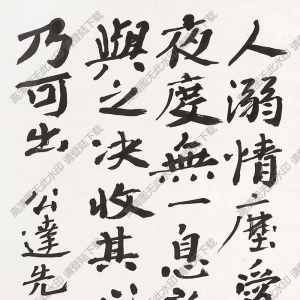 人溺情塵愛
夜度無一息
與之决收其
乃可出 公達先